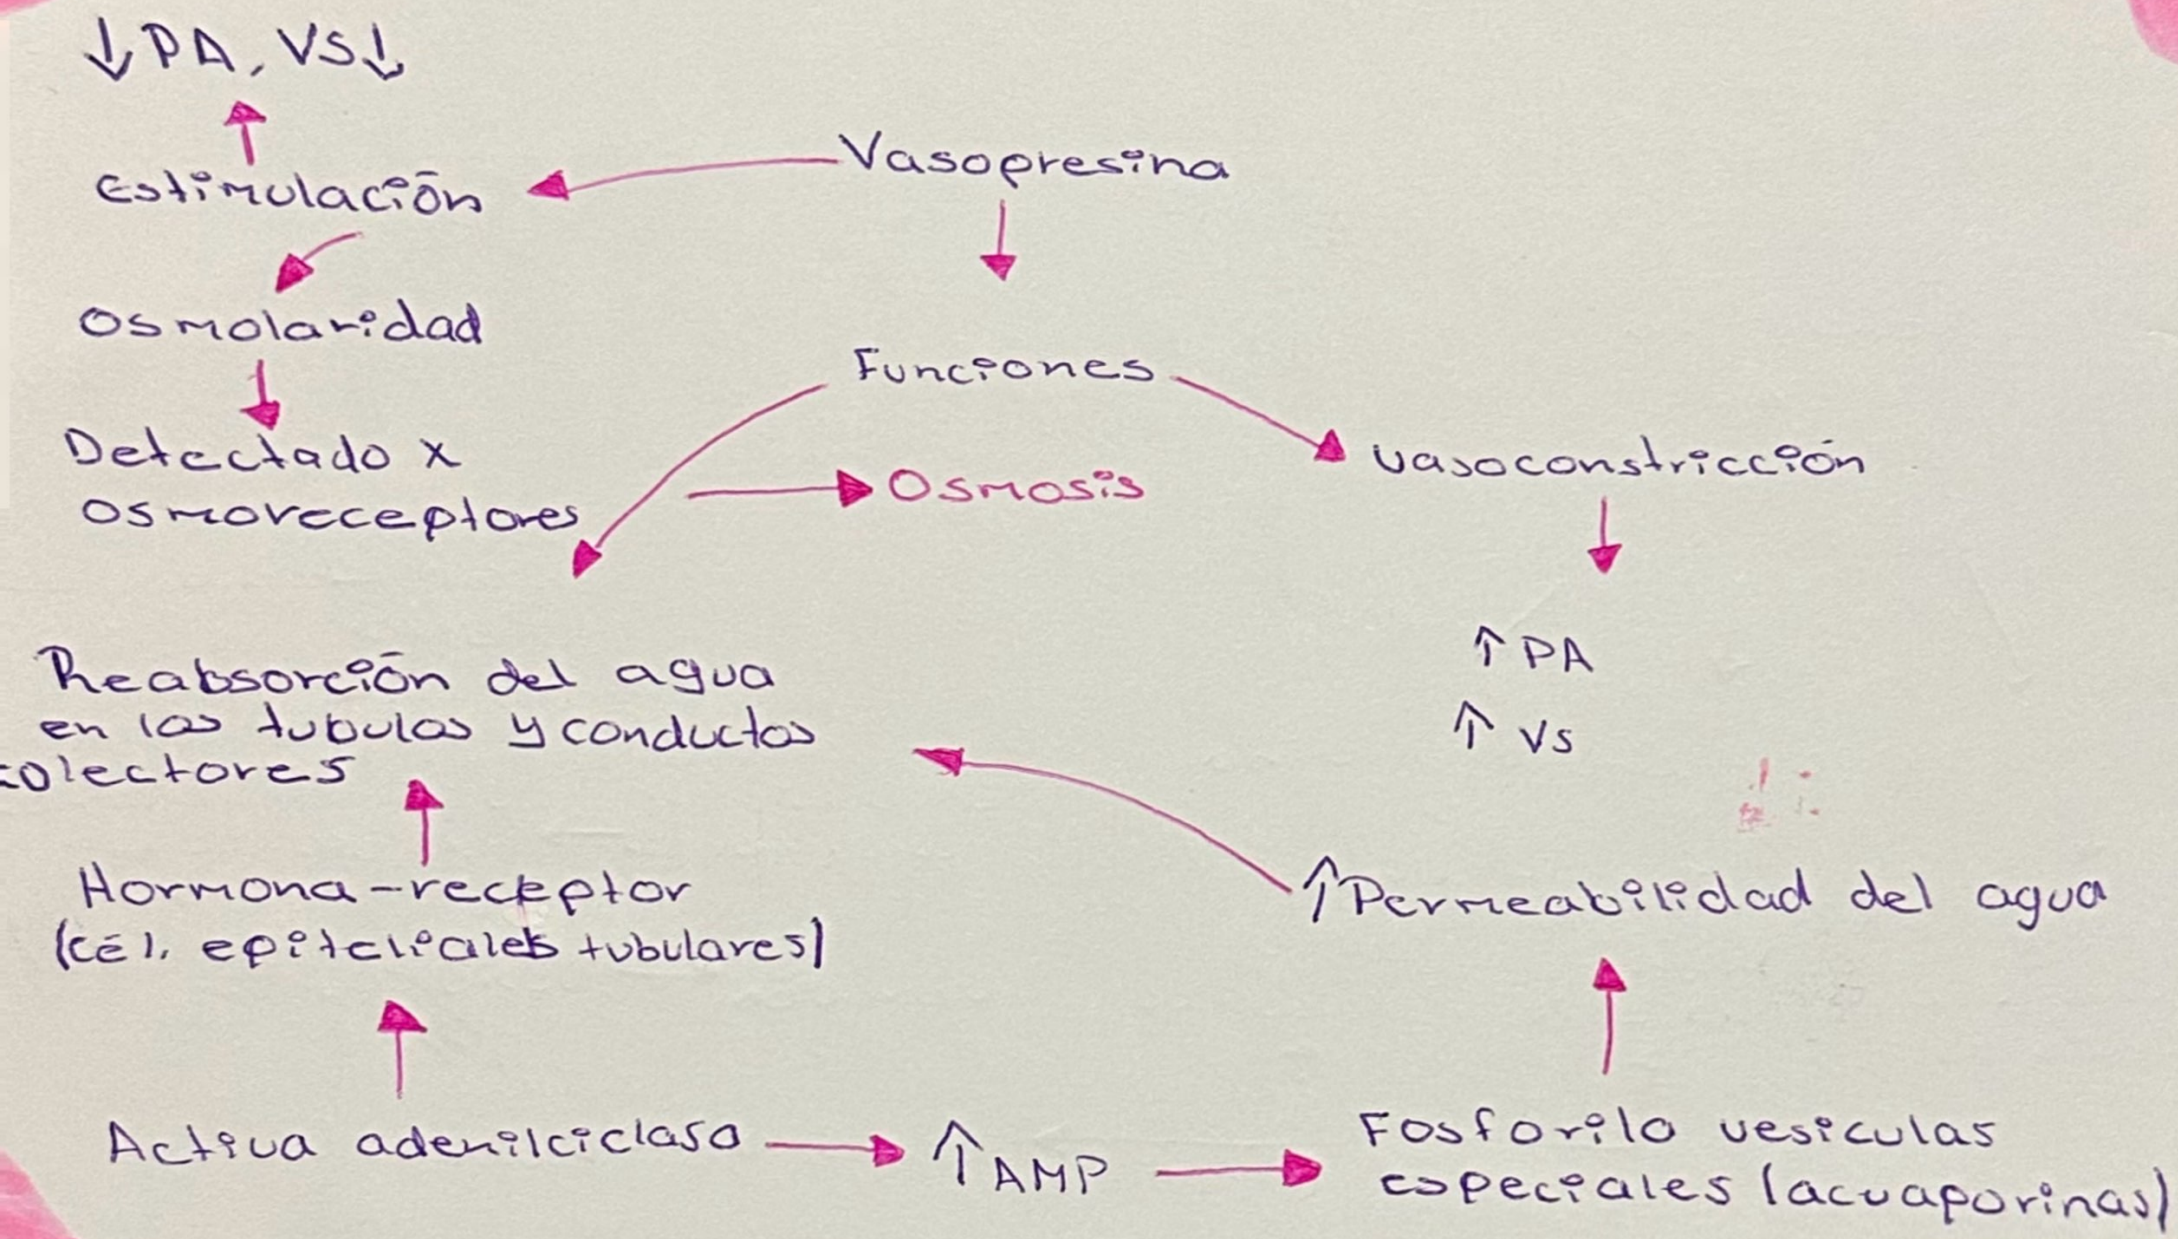 ↓PA, VS↓
Vasopresina
Estimulación
Osmolaridad
Funciones
Detectado x
osmoreceptores
Osmosis
vasoconstricción
↑ PA
↑ VS
Reabsorción del agua
en los tubulos y conductos
colectores
Hormona-receptor
(cél. epiteliales tubulares)
↑Permeabilidad del agua
Activa adenilciclasa
↑AMP
Fosforila vesiculas
especiales (acuaporinas)